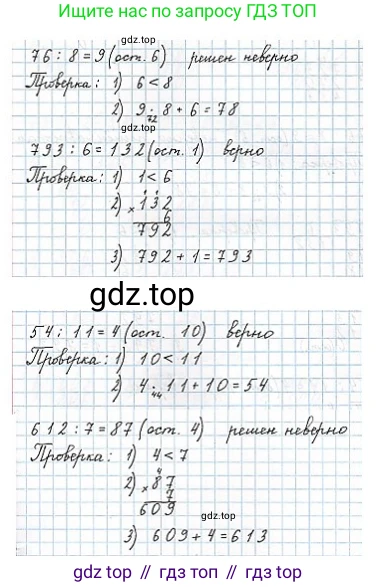 Ищите нас по запросу ГДЗ ТОП
76 : 8 = 9 (ост. 6) решен неверно
Проверка: 1) 6 < 8
2) 9 · 8 + 6 = 78
72
793 : 6 = 132 (ост. 1) верно
Проверка: 1) 1 < 6
1 1
2) × 132
6
792
3) 792 + 1 = 793
gdz.top
54 : 11 = 4 (ост. 10) верно
Проверка: 1) 10 < 11
2) 4 · 11 + 10 = 54
44
612 : 7 = 87 (ост. 4) решен неверно
Проверка: 1) 4 < 7
4
2) × 87
7
609
3) 609 + 4 = 613
gdz.top // гдз.топ // gdz.top